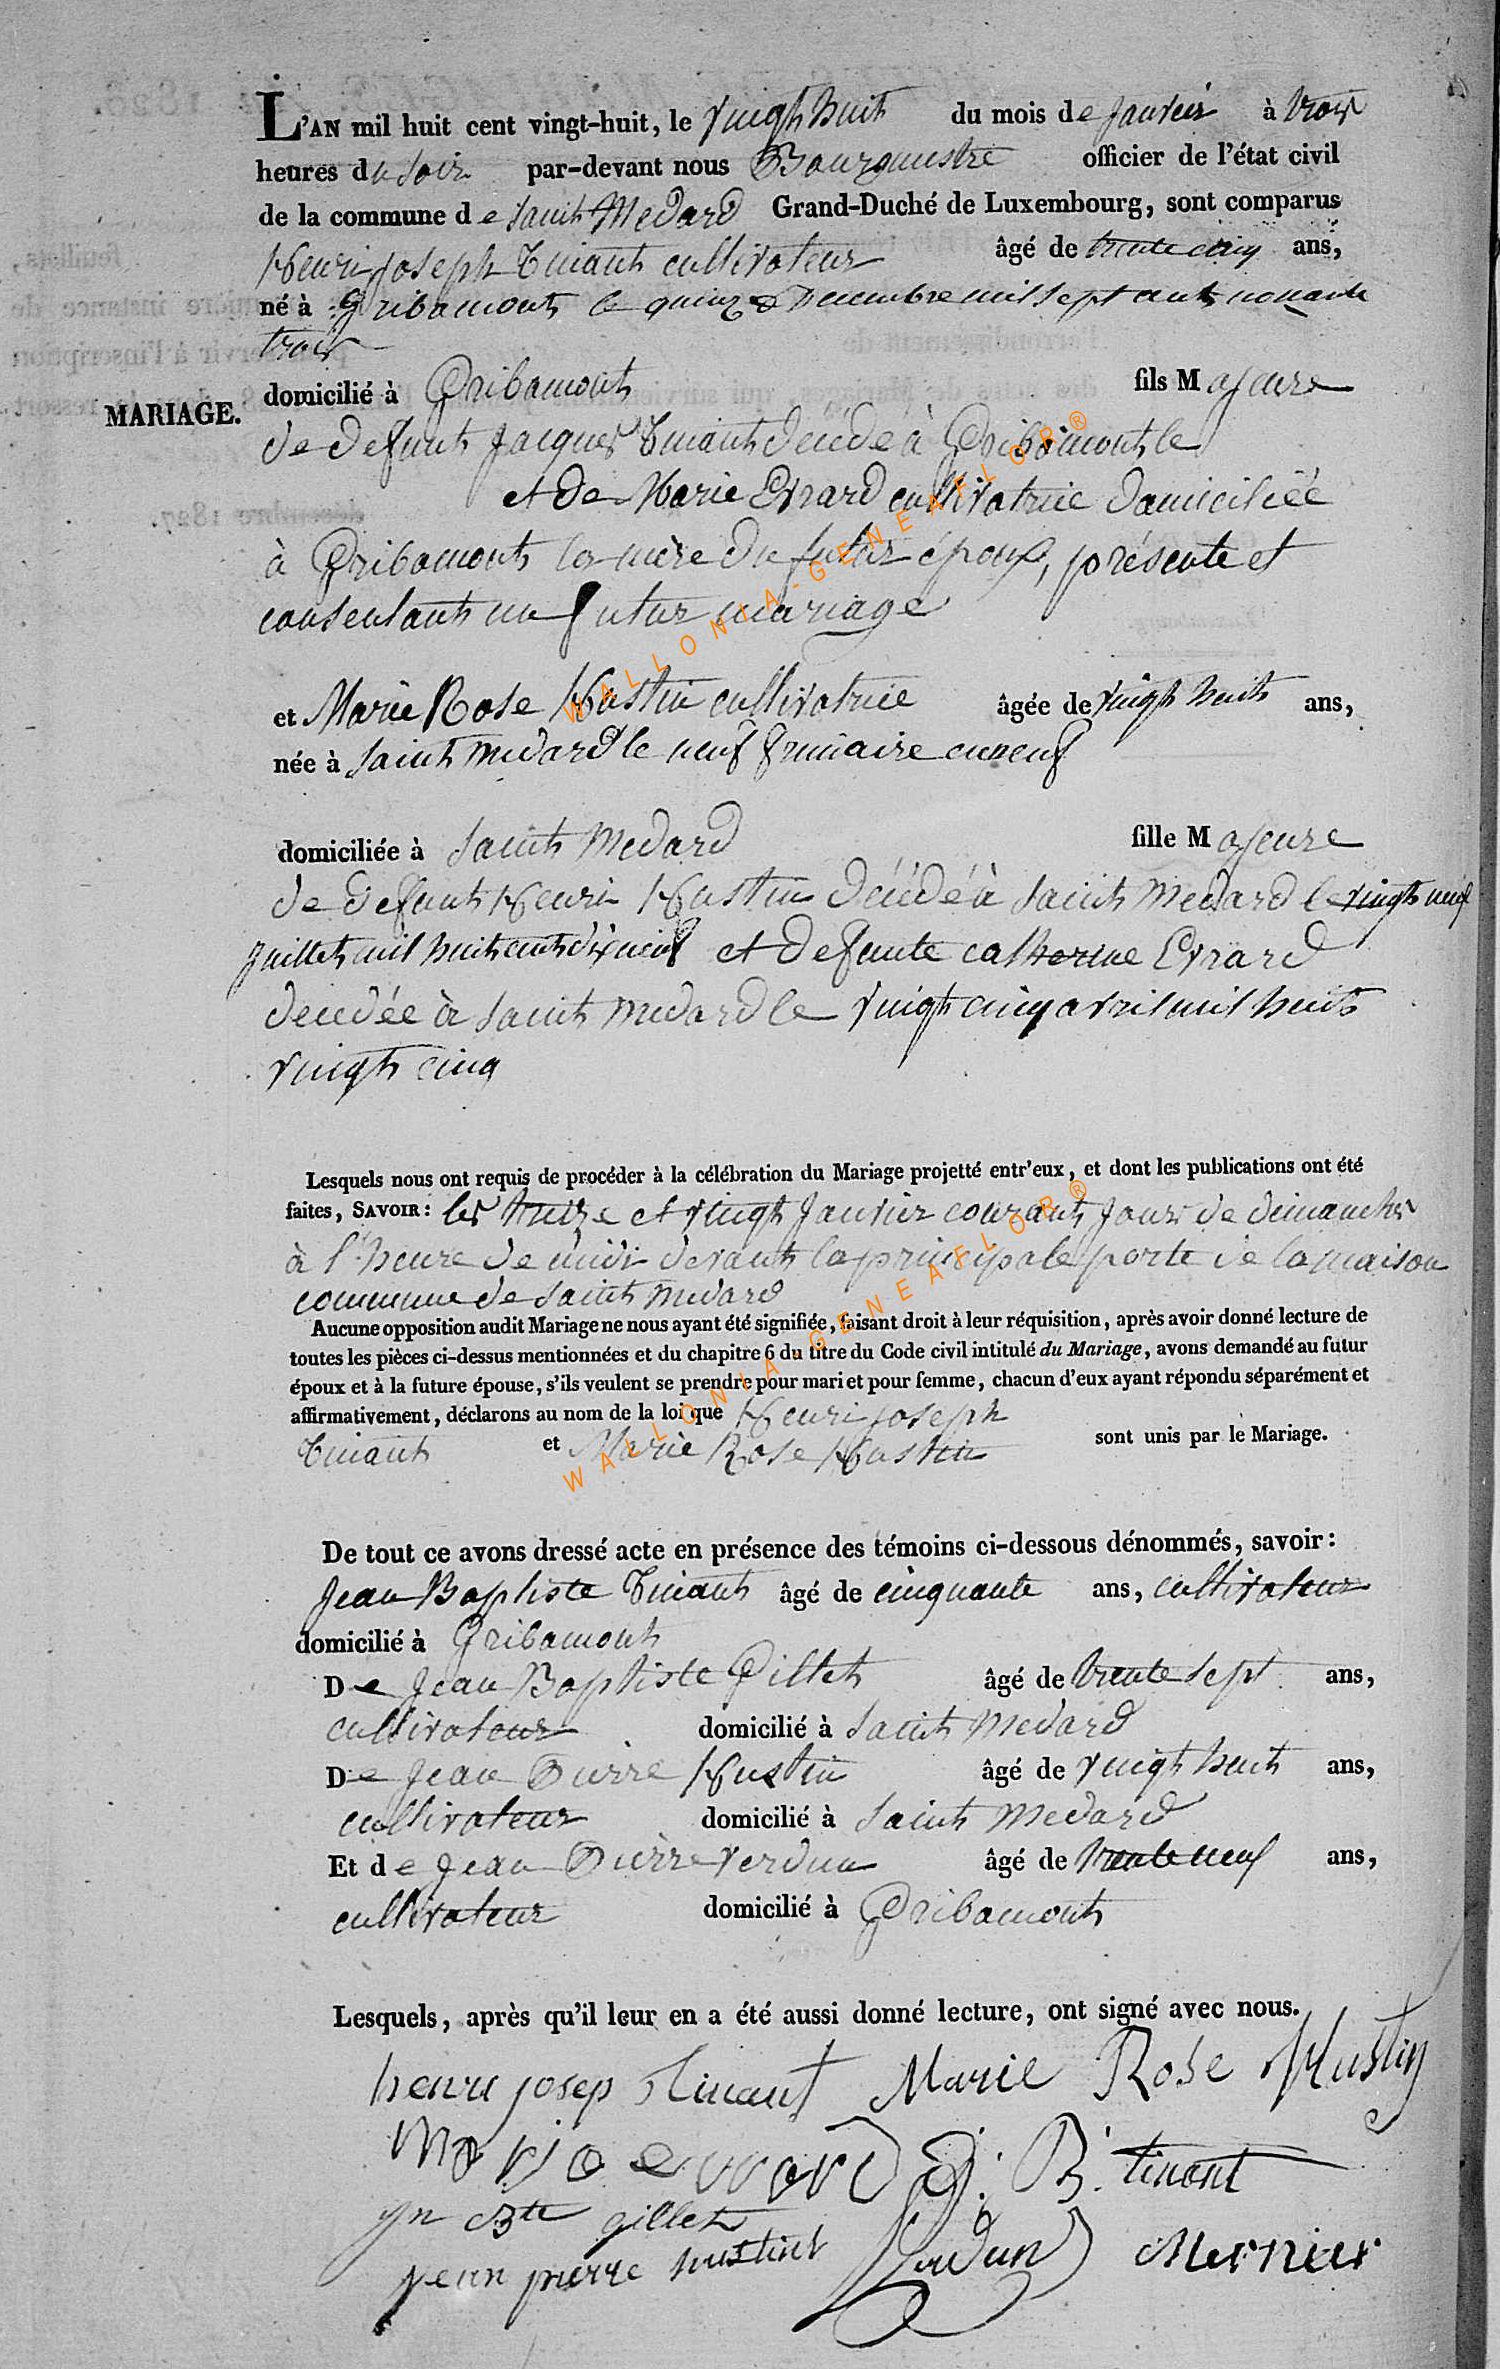 L'AN mil huit cent vingt-huit, le vingt huit du mois de janvier à trois
heures du soir par-devant nous Bourgmestre officier de l'état civil
de la commune de Saint Medard Grand-Duché de Luxembourg, sont comparus
Henri joseph Tinant cultivateur âgé de trente cinq ans,
né à Gribomont le quinze decembre mil sept cent nonante
trois
MARIAGE.
domicilié à Gribomont fils Majeure
de defunt Jacques Tinant décédé à Gribomont le
et de Marie Evrard cultivatrice domiciliéé
à Gribomont la mère du futur époux, présente et
consentant au futur mariage
et Marie Rose Hustin cultivatrice âgée de vingt huit ans,
née à Saint Medard le neuf frimaire an neuf
domiciliée à Saint Medard fille Majeure
de defunt Henri Hustin décédé à Saint Medard le vingt neuf
juillet mil huit cent dix neuf et defunte catherine Evrard
decedée à Saint Medard le vingt cinq avril mil huit
vingt cinq
Lesquels nous ont requis de procéder à la célébration du Mariage projetté entr'eux, et dont les publications ont été
faites, SAVOIR: les treize et vingt Janvier courant jours de dimanches
à l'heure de midi devant la principale porte de la maison
commune de Saint Medard
Aucune opposition audit Mariage ne nous ayant été signifiée, faisant droit à leur réquisition, après avoir donné lecture de
toutes les pièces ci-dessus mentionnées et du chapitre 6 du titre du Code civil intitulé du Mariage, avons demandé au futur
époux et à la future épouse, s'ils veulent se prendre pour mari et pour femme, chacun d'eux ayant répondu séparément et
affirmativement, déclarons au nom de la loi que Henri joseph
Tinant et Marie Rose Hustin sont unis par le Mariage.
De tout ce avons dressé acte en présence des témoins ci-dessous dénommés, savoir:
Jean Baptiste Tinant âgé de cinquante ans, cultivateur
domicilié à Gribomont
De Jean Baptiste Gillet âgé de trente sept ans,
cultivateur domicilié à Saint Medard
De Jean Pierre Hustin âgé de vingt huit ans,
cultivateur domicilié à Saint Medard
Et de Jean Pierre Verdun âgé de trente neuf ans,
cultivateur domicilié à Gribomont
Lesquels, après qu'il leur en a été aussi donné lecture, ont signé avec nous.
henri josep tinant Marie Rose Hustin
Marie evrard J. B. tinant
jn bte gillet
jean pierre hustint Verdun Mernier
WALLONIA-GENEAFLOR®
WALLONIA-GENEAFLOR®